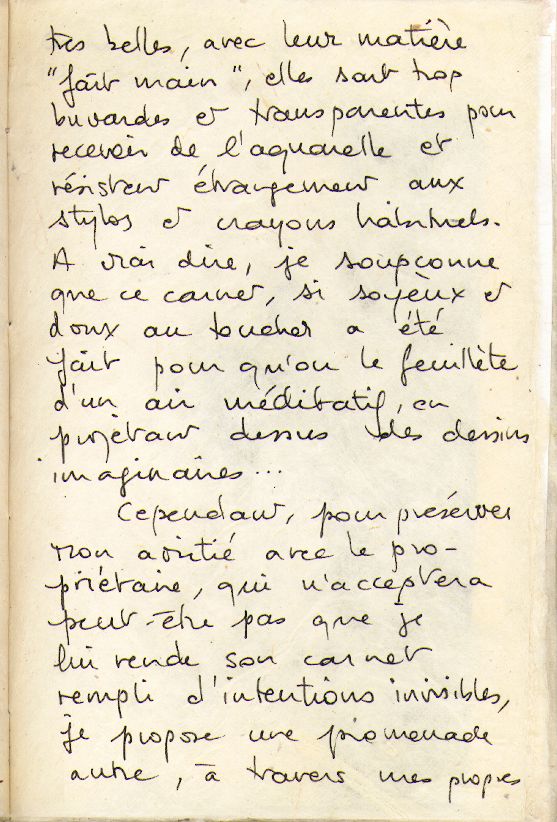 très belles, avec leur matière
"fait main", elles sont trop
buvardes et transparentes pour
recevoir de l'aquarelle et
résistent étrangement aux
stylos et crayons habituels.
A vrai dire, je soupçonne
que ce carnet, si soyeux et
doux au toucher a été
fait pour qu'on le feuillète
d'un air méditatif, en
projetant dessus des dessins
imaginaires...
Cependant, pour préserver
mon amitié avec le pro-
priétaire, qui n'acceptera
peut-être pas que je
lui rende son carnet
rempli d'intentions invisibles,
je propose une promenade
autre, à travers mes propres